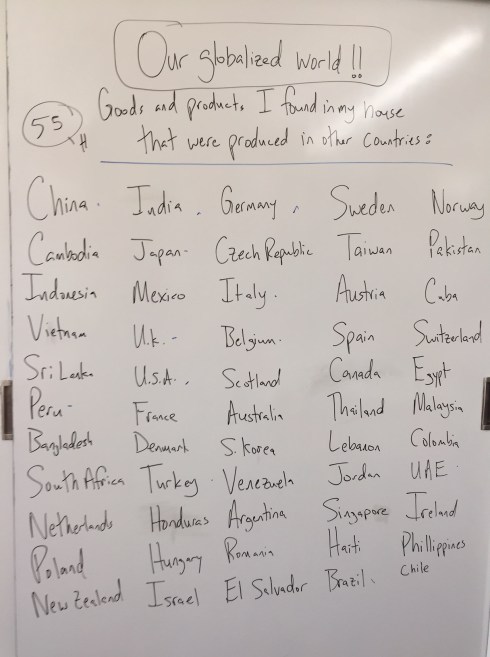 Our globalized world!!
55
Goods and products I found in my house
that were produced in other countries:
China. India. Germany. Sweden Norway
Cambodia Japan- Czech Republic Taiwan Pakistan
Indonesia Mexico Italy. Austria Cuba
Vietnam U.K.- Belgium. Spain Switzerland
Sri Lanka U.S.A.. Scotland Canada Egypt
Peru- France Australia Thailand Malaysia
Bangladesh Denmark S. Korea Lebanon Colombia
South Africa Turkey Venezuela Jordan UAE
Netherlands Honduras Argentina Singapore Ireland
Poland Hungary Romania Haiti Phillippines
New Zealand Israel El Salvador Brazil. Chile